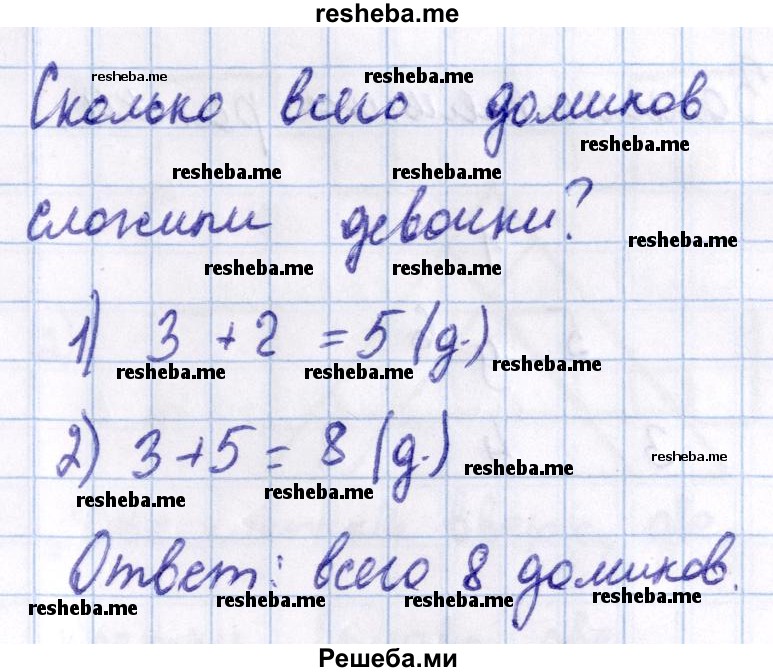 resheba.me
resheba.me resheba.me
Сколько всего домиков
resheba.me
resheba.me resheba.me
сложили девочки?
resheba.me
resheba.me resheba.me
1) 3 + 2 = 5 (д.)
resheba.me resheba.me resheba.me
2) 3 + 5 = 8 (д.)
resheba.me resheba.me resheba.me resheba.me
Ответ: всего 8 домиков.
resheba.me resheba.me resheba.me resheba.me
Решеба.ми